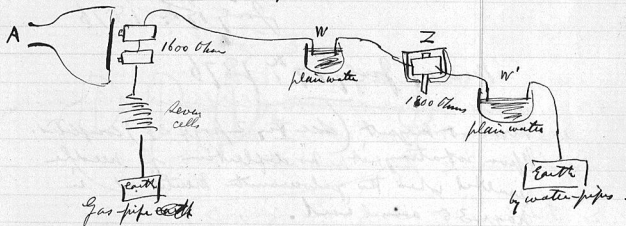 A
1600 Ohm
seven
cells
earth
Gas-pipe
W
plain water
Z
1800 Ohms
W'
plain water
Earth
by water-pipes.